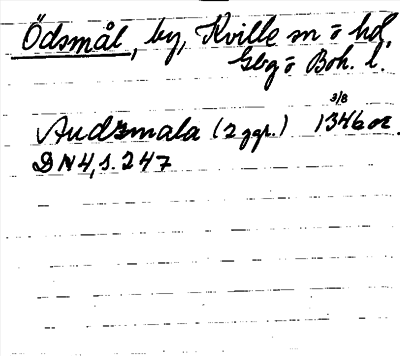 Ödsmål, by, Kville sn o hd,
Gbg o Boh. l.
3/8
Audzmala (2 ggr.) 1346 or.
DN4, s. 247